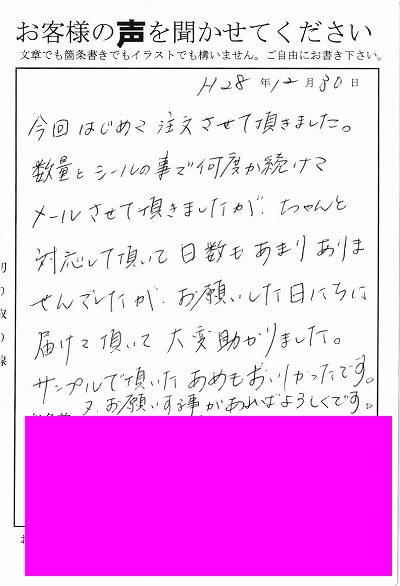 お客様の声を聞かせてください
文章でも箇条書きでもイラストでも構いません。ご自由にお書き下さい。
H28年12月30日
今回はじめて注文させて頂きました。
数量とシールの事で何度か続けて
メールさせて頂きましたが、ちゃんと
対応して頂いて日数もあまりありま
せんでしたが、お願いした日にちに
届けて頂いて大変助かりました。
サンプルで頂いたあめもおいしかったです。
又、お願いする事があればよろしくです。
切り取り線